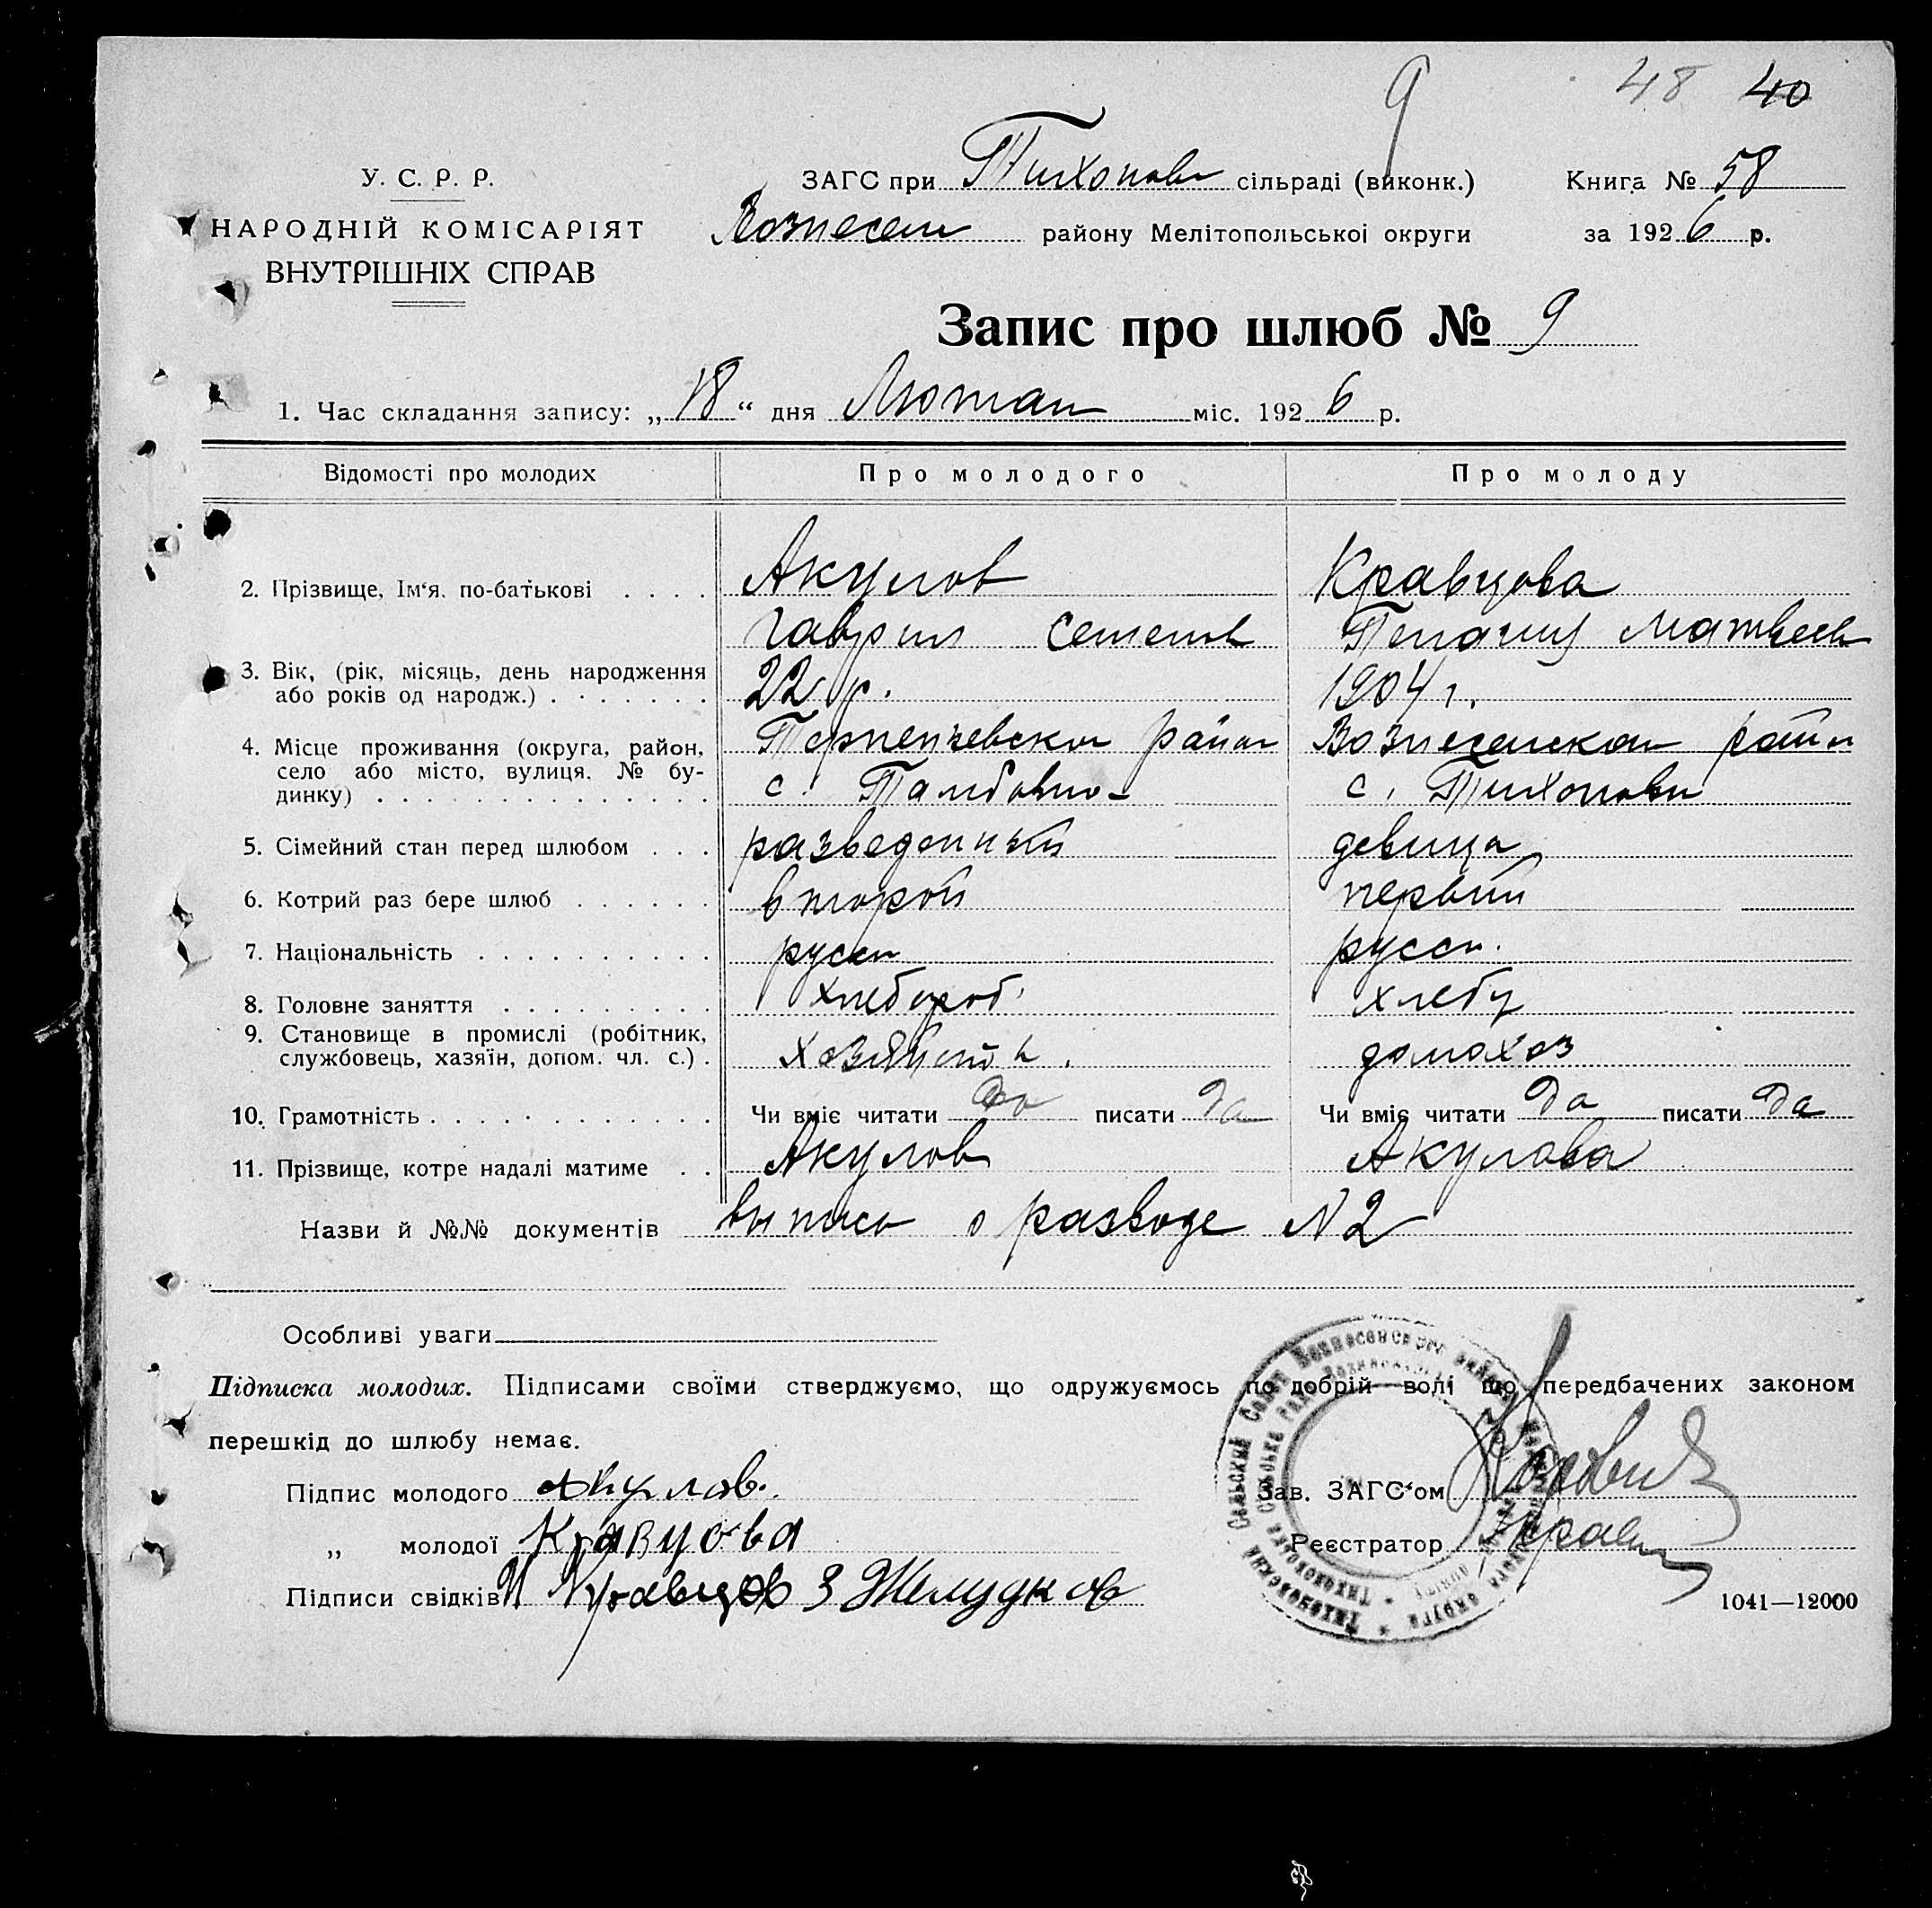 9 48 40
У. С. Р. Р.
НАРОДНІЙ КОМІСАРІЯТ
ВНУТРІШНІХ СПРАВ
ЗАГС при Тихонов сільраді (виконк.) Книга № 58
Вознесен району Мелітопольської округи за 1926 р.
Запис про шлюб № 9
1. Час складання запису: „18“ дня Лютан міс. 1926 р.
Відомості про молодих Про молодого Про молоду
2. Прізвище, Ім'я, по-батькові . . . . Акулов Кравцова
Гаврил Семенов Матвеев
3. Вік, (рік, місяць, день народження
або років од народж.) . . . . . . . 22 р. 1904 г.
4. Місце проживання (округа, район,
село або місто, вулиця, № бу-
динку) . . . . . . . . . . . . . .
Терпеньевско район Вознесенскои район
с. Тамбовно- с. Тихоновки
5. Сімейний стан перед шлюбом . . . разведенный девица
6. Котрий раз бере шлюб . . . . . . второй первый
7. Національність . . . . . . . . . . русск русск.
8. Головне заняття . . . . . . . . . хлебороб хлебр
9. Становище в промислі (робітник,
службовець, хазяїн, допом. чл. с.) . домохоз
10. Грамотність . . . . . . . . . . . . Чи вміє читати да писати да Чи вміє читати да писати да
11. Прізвище, котре надалі матиме . . Акулов Акулова
Назви й №№ документів выпись о разводе N 2
Особливі уваги
Підписка молодих. Підписами своїми стверджуємо, що одружуємось по добрій волі що передбачених законом
перешкід до шлюбу немає.
Підпис молодого Акулов. Зав. ЗАГС'ом
„ молодої Кравцова Реєстратор
Підписи свідків И Кравцов З Желудков
1041—12000